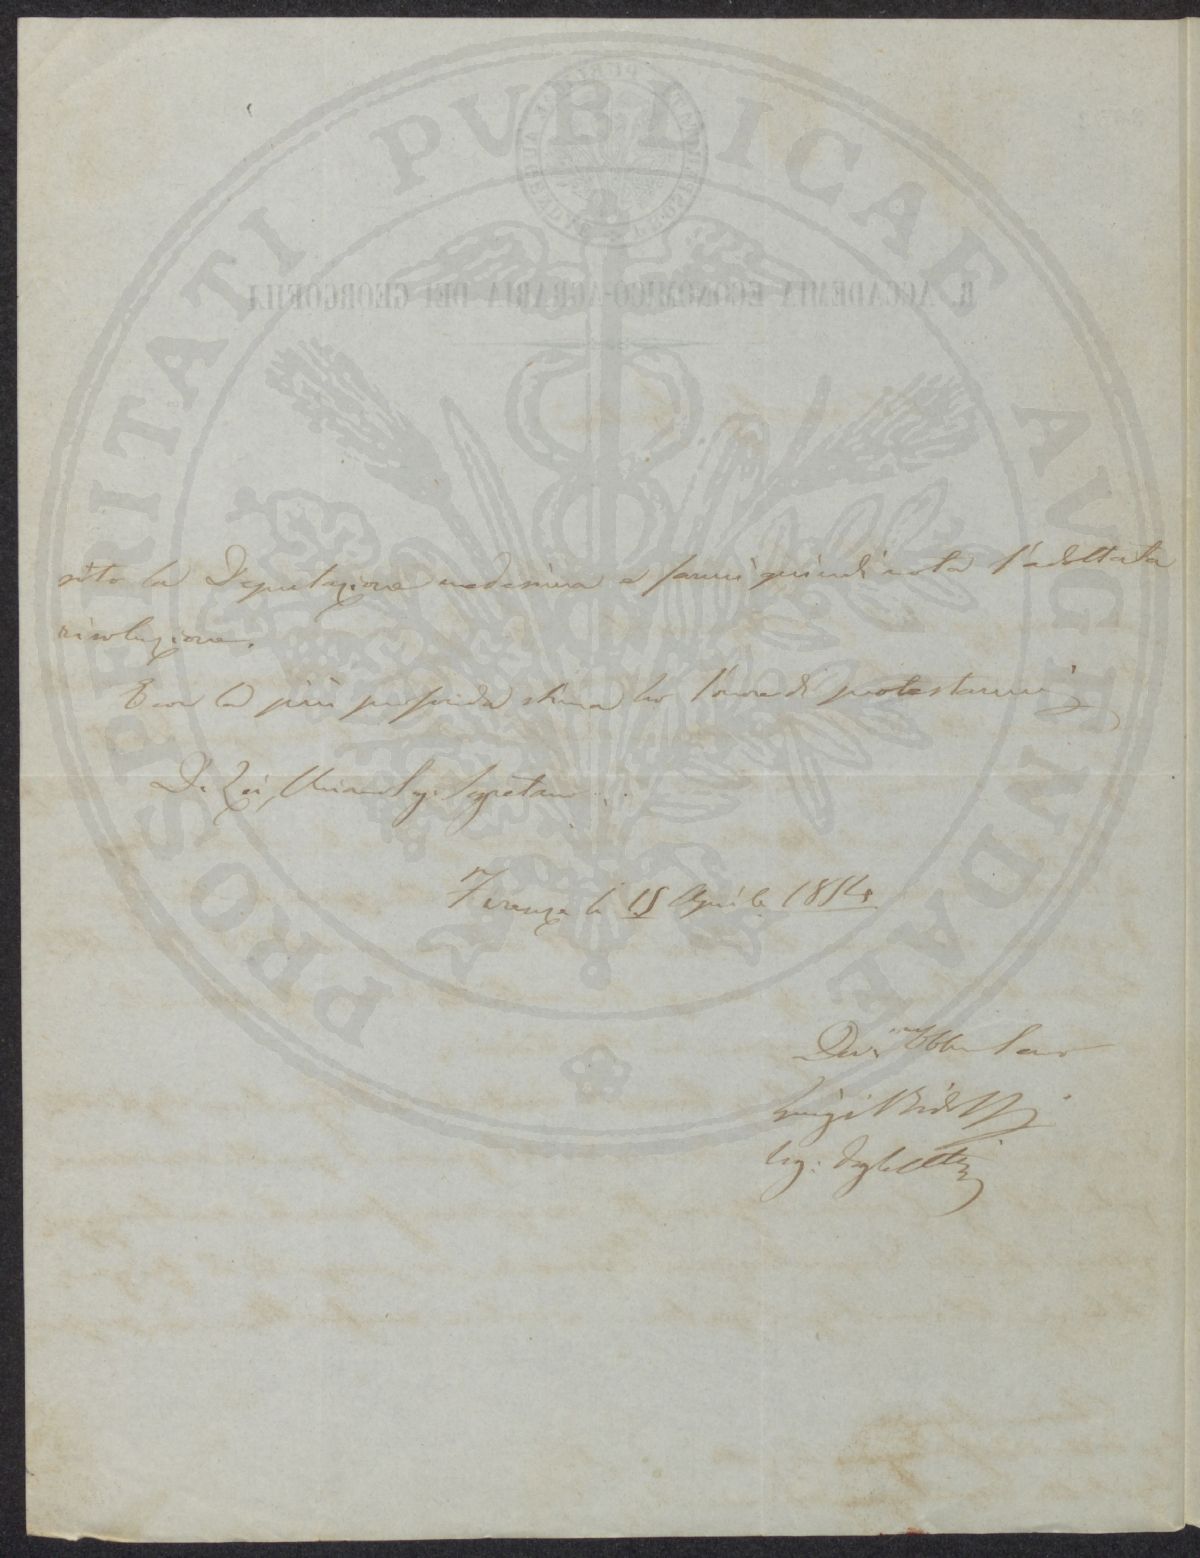 PROSPERITATI PUBLICAE AUGENDAE
R. ACCADEMIA ECONOMICO-AGRARIA DEI GEORGOFILI
sito la Deputazione medesima e farmi quindi nota l'adottata
risoluzione.
E con la più profonda stima ho l'onore di protestarmi
Di Lei, Segretario
Firenze li 15 Aprile 1854.
Dev.mo Obbl. Servo
Luigi Ridolfi
Seg: degli Atti